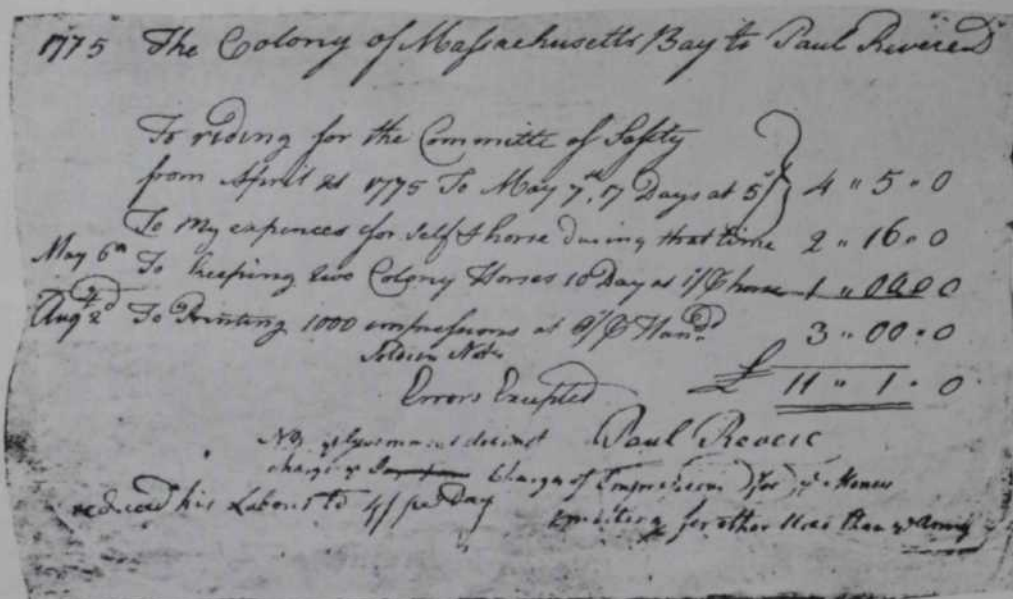 1775 The Colony of Massachusetts Bay to Paul Revere Dr
To riding for the Committe of Safty
from April 21 1775 To May 7th, 17 Days at 5/ 4 " 5 " 0
To my expences for self & horse during that time 2 " 16 " 0
May 6th To keeping two Colony Horses 10 Day at 1/ horse 1 " 00 " 0
Augt 2d To Printing 1000 impressions at 6/ Hand 3 " 00 " 0
Soldiers Notes
Errors Excepted £ 11 " 1 " 0
Paul Revere
NB
charge of Impressions for
reduced his Labour to 4/ per Day
for other Uses than Army